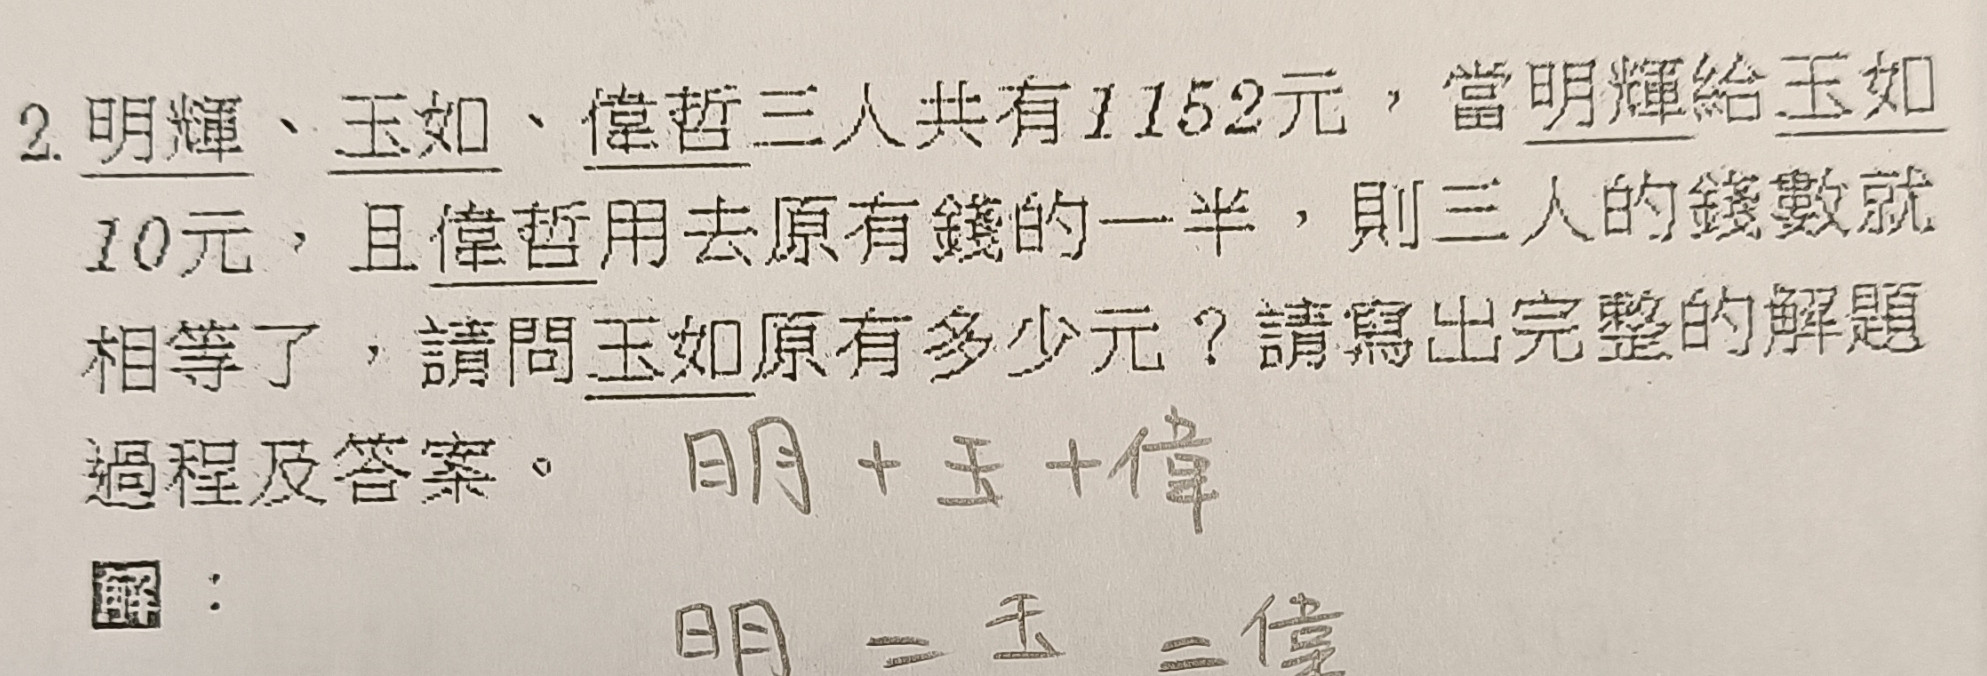 2. 明輝、玉如、偉哲三人共有1152元，當明輝給玉如
10元，且偉哲用去原有錢的一半，則三人的錢數就
相等了，請問玉如原有多少元？請寫出完整的解題
過程及答案。 明+玉+偉
解：
明=玉=偉